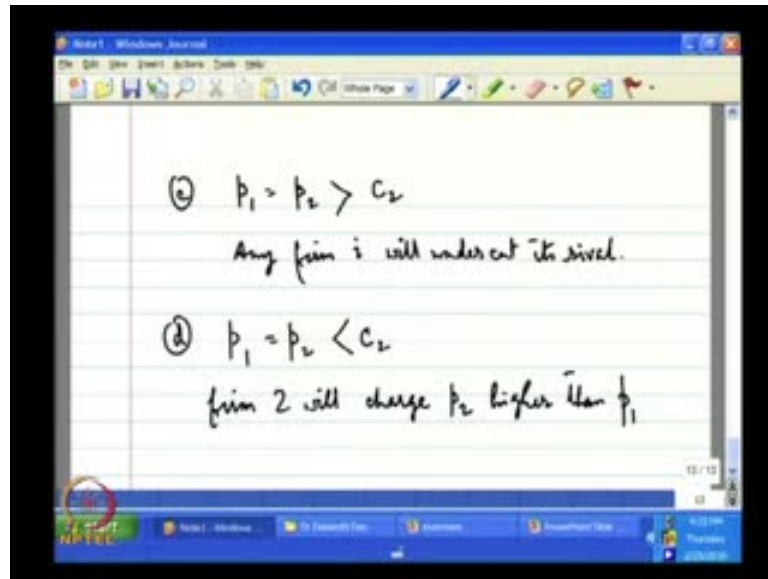 Note1 - Windows Journal
File Edit View Insert Actions Tools Help
Whole Page
(c) p₁ = p₂ > c₂
Any firm i will undercut its rival.
(d) p₁ = p₂ < c₂
firm 2 will charge p₂ higher than p₁
13 / 13
NPTEL
Note1 - Windows ...
Thursday